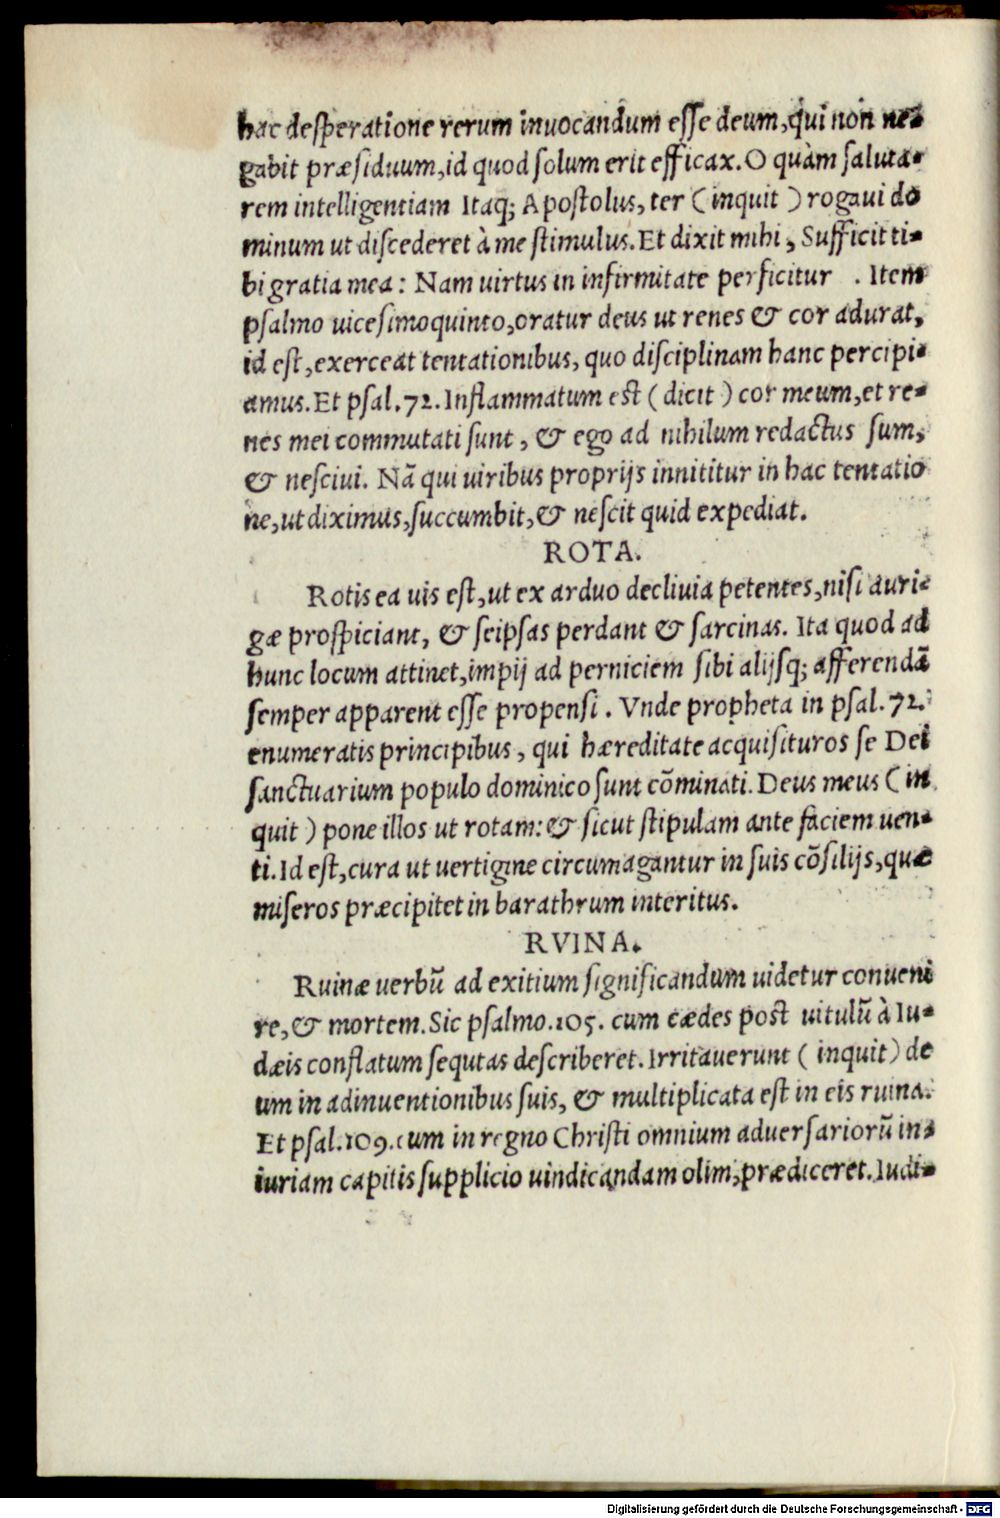 hac desperatione rerum inuocandum esse deum, qui non ne-
gabit præsiduum, id quod solum erit efficax. O quàm saluta-
rem intelligentiam Itaq; Apostolus, ter ( inquit ) rogaui do
minum ut discederet à me stimulus. Et dixit mihi, Sufficit ti-
bi gratia mea: Nam uirtus in infirmitate perficitur . Item
psalmo uicesimoquinto, oratur deus ut renes & cor adurat,
id est, exerceat tentationibus, quo disciplinam hanc percipi-
amus. Et psal. 72. Inflammatum est ( dicit ) cor meum, et re-
nes mei commutati sunt, & ego ad nihilum redactus sum,
& nesciui. Nã qui uiribus proprijs innititur in hac tentatio
ne, ut diximus, succumbit, & nescit quid expediat.
ROTA.
Rotis ea uis est, ut ex arduo decliuia petentes, nisi auri-
gæ prospiciant, & seipsas perdant & sarcinas. Ita quod ad
hunc locum attinet, impij ad perniciem sibi alijsq; afferendã
semper apparent esse propensi. Vnde propheta in psal. 72.
enumeratis principibus, qui hæreditate acquisituros se Dei
sanctuarium populo dominico sunt cõminati. Deus meus ( in
quit ) pone illos ut rotam: & sicut stipulam ante faciem uen-
ti. Id est, cura ut uertigine circumagantur in suis cõsilijs, quæ
miseros præcipitet in barathrum interitus.
RVINA.
Ruinæ uerbũ ad exitium significandum uidetur conueni
re, & mortem. Sic psalmo. 105. cum cædes post uitulũ à Iu-
dæis conflatum sequtas describeret. Irritauerunt ( inquit ) de
um in adinuentionibus suis, & multiplicata est in eis ruina.
Et psal. 109. cum in regno Christi omnium aduersariorũ in-
iuriam capitis supplicio uindicandam olim, prædiceret. Iudi-
Digitalisierung gefördert durch die Deutsche Forschungsgemeinschaft - DFG